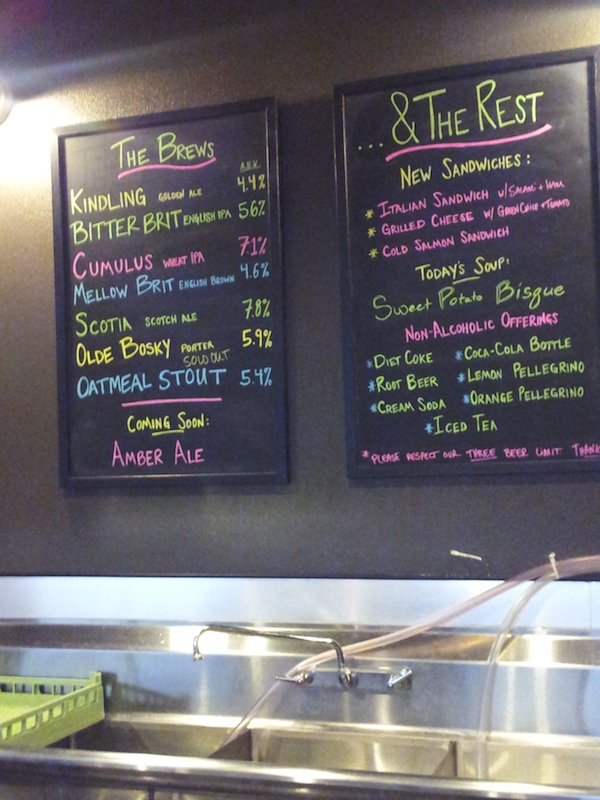 The Brews
A.B.V.
Kindling Golden Ale 4.4%
Bitter Brit English IPA 5.6%
Cumulus Wheat IPA 7.1%
Mellow Brit English Brown 4.6%
Scotia Scotch Ale 7.8%
Olde Bosky Porter 5.9%
Sold Out
Oatmeal Stout 5.4%
Coming Soon:
Amber Ale
... & The Rest
New Sandwiches:
* Italian Sandwich w/ Salami + Ham
* Grilled Cheese w/ Green Chile + Tomato
* Cold Salmon Sandwich
Today's Soup:
Sweet Potato Bisque
Non-Alcoholic Offerings
* Diet Coke * Coca-Cola Bottle
* Root Beer * Lemon Pellegrino
* Cream Soda * Orange Pellegrino
* Iced Tea
* Please respect our three beer limit. Thank